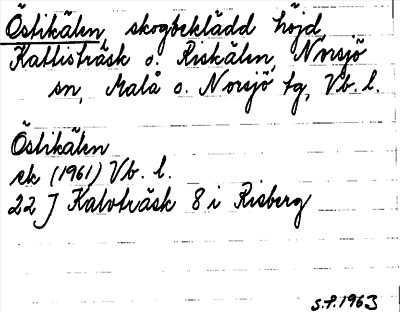 Östikälen, skogbeklädd höjd,
Kattisträsk o. Riskälen, Norsjö
sn, Malå o. Norsjö tg, Vb. l.
Östikälen
ek (1961) Vb. l.
22 J Kalvträsk 8 i Risberg
s.f. 1963